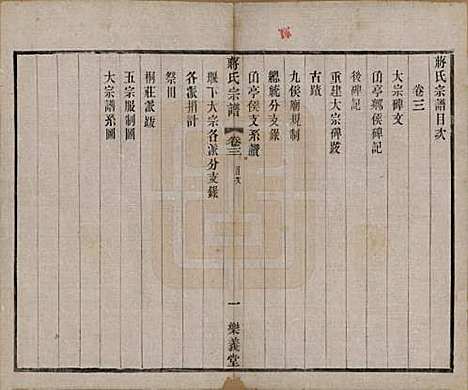 蔣氏宗譜目次
卷三
大宗碑文
𠄔亭鄉侯碑記
後碑記
重建大宗碑跋
古蹟
九侯廟規制
𠄔亭侯支系讚
總統分支錄
蔣氏宗譜 卷三 目次 一 樂義堂
堰下大宗各派分支錄
各派捐計
祭田
桐莊派跋
五宗服制圖
大宗譜系圖